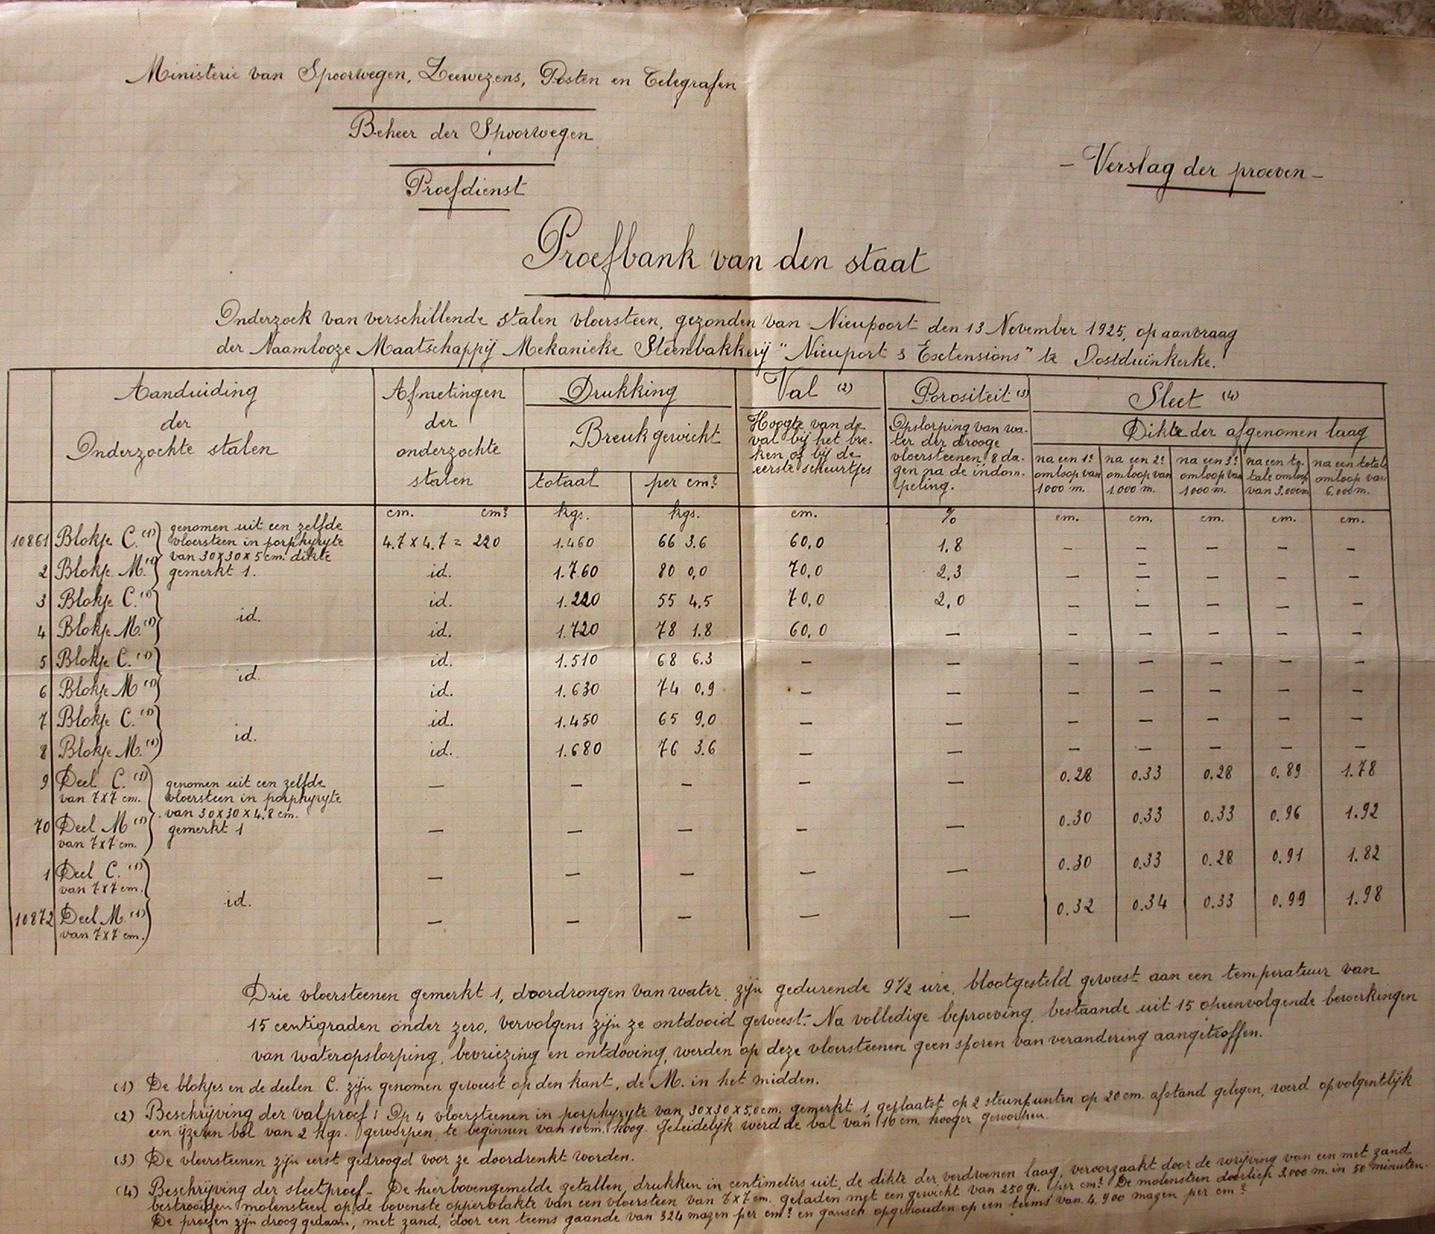 Ministerie van Spoorwegen, Zeewezens, Posten en Telegrafen
Beheer der Spoorwegen
Proefdienst
– Verslag der proeven –
Proefbank van den staat
Onderzoek van verschillende stalen vloersteen, gezonden van Nieupoort den 13 November 1925, op aanvraag
der Naamlooze Maatschappij Mekanieke Steenbakkerij "Nieuport's Extensions" te Oostduinkerke.
Aanduiding der Onderzochte stalen
Afmetingen der onderzochte stalen
Drukking
Breukgewicht
totaal per cm²
Val (2)
Hoogte van de val bij het breken of bij de eerste scheurtjes
Porositeit (3)
Opslorping van water der drooge vloersteenen 8 dagen na de indompeling.
Sleet (4)
Dikte der afgenomen laag
na een 1e omloop van 1000 m.
na een 2e omloop van 1000 m.
na een 3e omloop van 1000 m.
na een totale omloop van 3.000 m
na een totale omloop van 6.000 m.
cm. cm² kgs. kgs. cm. % cm. cm. cm. cm. cm.
10861 Blokje C. (1) genomen uit een zelfde vloersteen in porphyryte van 30x30x5 cm. dikte gemerkt 1. 4.7 x 4.7 = 220 1.460 66 3.6 60,0 1.8 – – – – –
2 Blokje M. (1) id. 1.760 80 0,0 70,0 2,3 – – – – –
3 Blokje C. (1) id. id. 1.220 55 4,5 70,0 2,0 – – – – –
4 Blokje M. (1) id. 1.720 78 1.8 60,0 – – – – – –
5 Blokje C. (1) id. id. 1.510 68 6.3 – – – – – – –
6 Blokje M (1) id. 1.630 74 0,9 – – – – – – –
7 Blokje C. (1) id. id. 1.450 65 9,0 – – – – – – –
8 Blokje M. (1) id. 1.680 76 3.6 – – – – – – –
9 Deel C. (1) van 7x7 cm. genomen uit een zelfde vloersteen in porphyryte van 30x30x4,8 cm. gemerkt 1 – – – – – 0.28 0.33 0.28 0.89 1.78
70 Deel M (1) van 7x7 cm. – – – – – 0.30 0.33 0.33 0.96 1.92
1 Deel C. (1) van 7x7 cm. id. – – – – – 0.30 0.33 0.28 0.91 1.82
10872 Deel M. (1) van 7x7 cm. – – – – – 0.32 0.34 0.33 0.99 1.98
Drie vloersteenen gemerkt 1, doordrongen van water, zijn gedurende 9½ ure, blootgesteld geweest aan een temperatuur van
15 centigraden onder zero, vervolgens zijn ze ontdooid geweest. Na volledige beproeving, bestaande uit 15 opeenvolgende bewerkingen
van wateropslorping, bevriezing en ontdooing, werden op deze vloersteenen geen sporen van verandering aangetroffen.
(1) De blokjes en de deelen C. zijn genomen geweest op den kant, de M. in het midden.
(2) Beschrijving der valproef: Op 4 vloersteenen in porphyryte van 30x30x5,0 cm. gemerkt 1, geplaatst op 2 steunpunten op 20 cm. afstand gelegen, werd opvolgentlijk
een ijzeren bol van 2 kgs. geworpen, te beginnen van 10 cm. hoog. Geleidelijk werd de val van 10 cm hooger geworpen.
(3) De vloersteenen zijn eerst gedroogd voor ze doordrenkt worden.
(4) Beschrijving der sleetproef – De hierbovengemelde getallen, drukken in centimeters uit, de dikte der verdwenen laag, veroorzaakt door de wrijving van een met zand
bestrooiden molensteen op de bovenste oppervlakte van een vloersteen van 7x7 cm. geladen met een gewicht van 250 gr. per cm². De molensteen doorliep 3.000 m. in 50 minuten.
De proefen zijn droog gedaan, met zand, door een teems gaande van 324 mazen per cm² en gansch opgehouden op een teems van 4.900 mazen per cm²